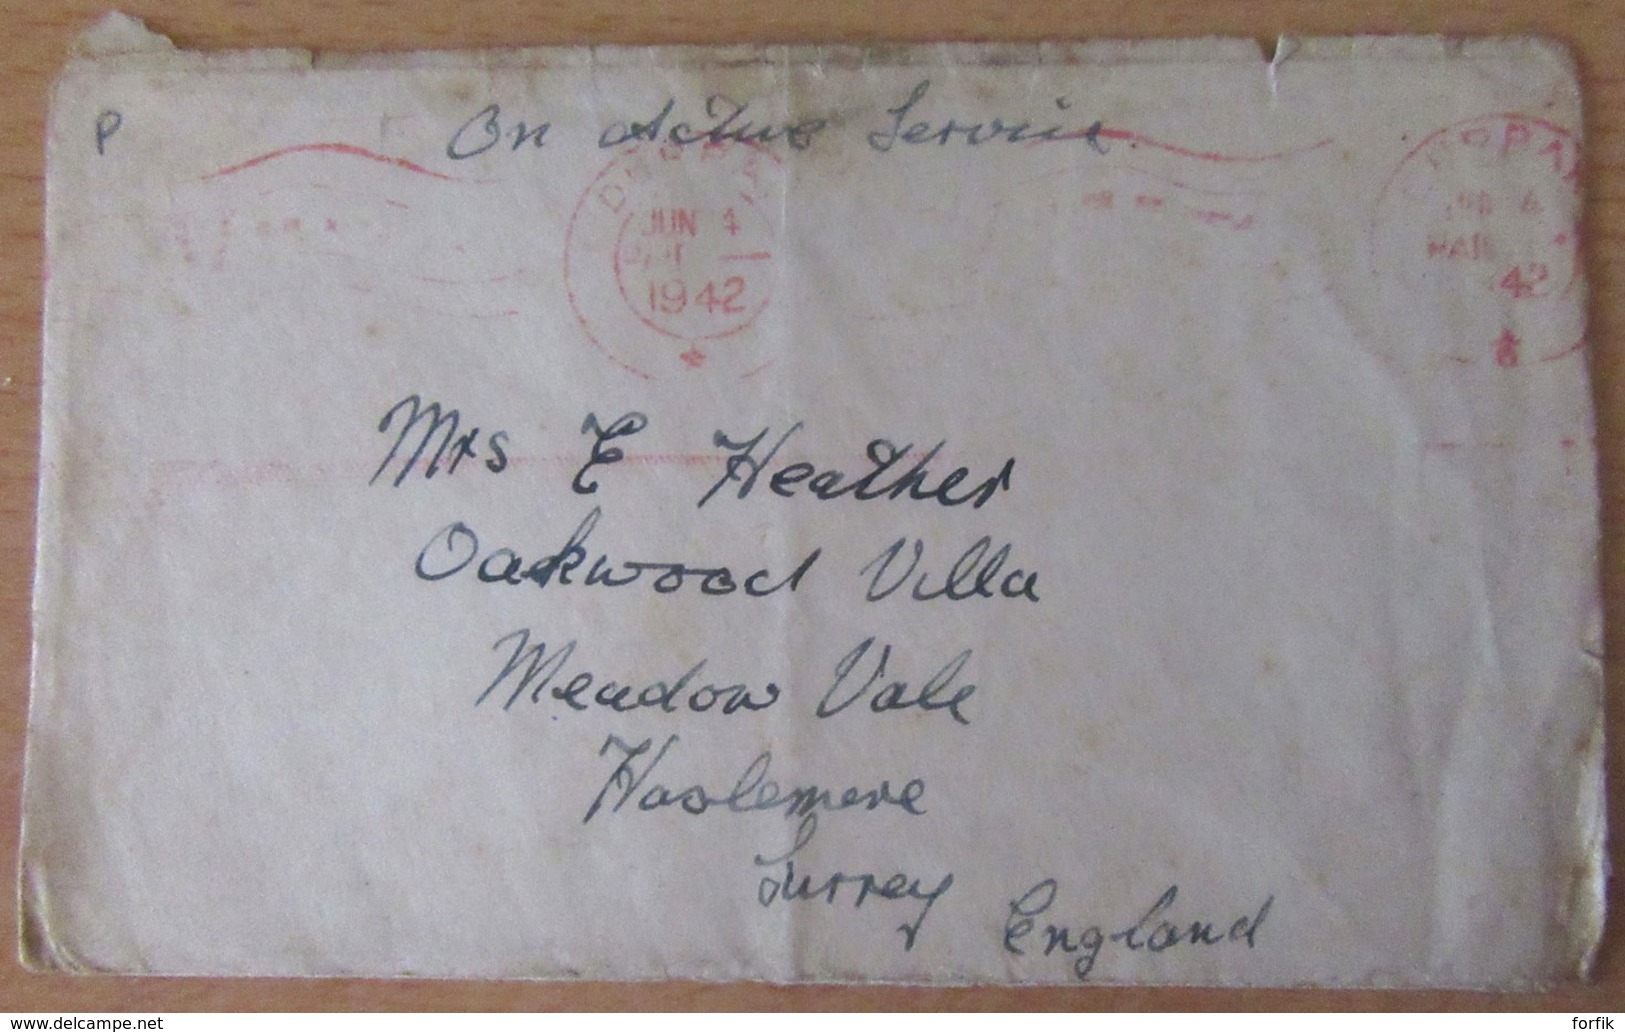 P
On Active Service
JUN 4
1942
42
Mrs E Heather
Oakwood Villa
Meadow Vale
Haslemere
Surrey
England
delcampe.net
forfik